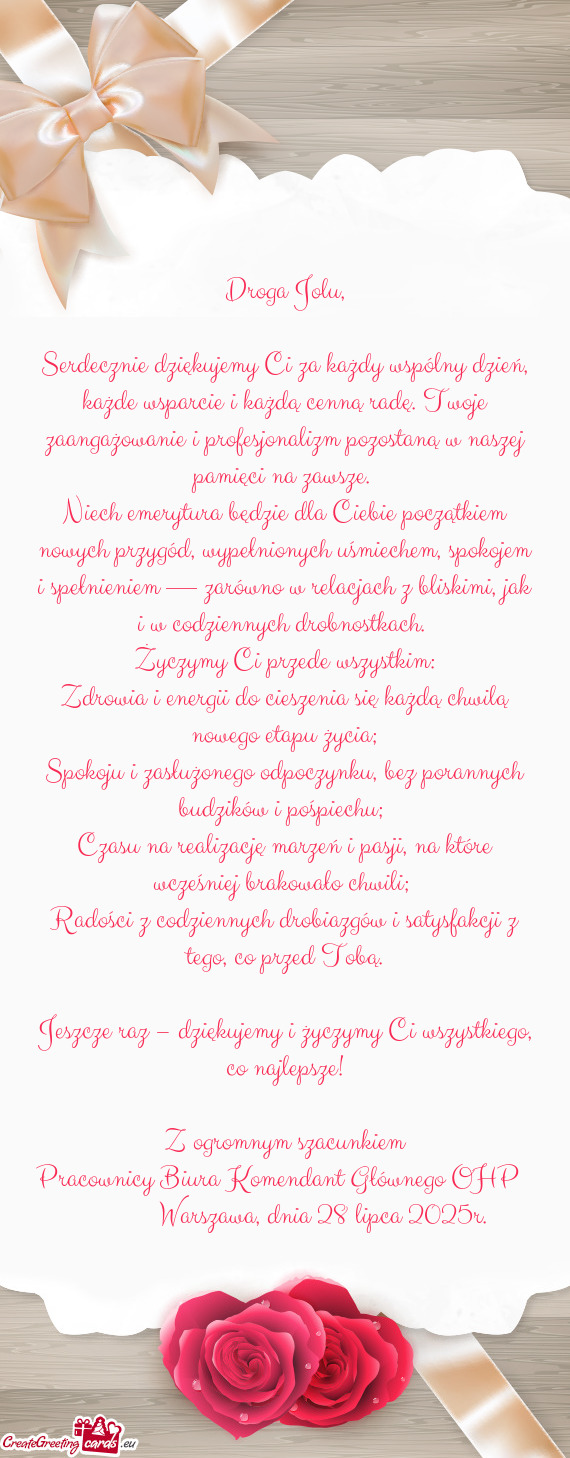 Droga Jolu,
Serdecznie dziękujemy Ci za każdy wspólny dzień,
każde wsparcie i każdą cenną radę. Twoje
zaangażowanie i profesjonalizm pozostaną w naszej
pamięci na zawsze.
Niech emerytura będzie dla Ciebie początkiem
nowych przygód, wypełnionych uśmiechem, spokojem
i spełnieniem — zarówno w relacjach z bliskimi, jak
i w codziennych drobnostkach.
Życzymy Ci przede wszystkim:
Zdrowia i energii do cieszenia się każdą chwilą
nowego etapu życia;
Spokoju i zasłużonego odpoczynku, bez porannych
budzików i pośpiechu;
Czasu na realizację marzeń i pasji, na które
wcześniej brakowało chwili;
Radości z codziennych drobiazgów i satysfakcji z
tego, co przed Tobą.
Jeszcze raz – dziękujemy i życzymy Ci wszystkiego,
co najlepsze!
Z ogromnym szacunkiem
Pracownicy Biura Komendant Głównego OHP
Warszawa, dnia 28 lipca 2025r.
CreateGreetingcards.eu